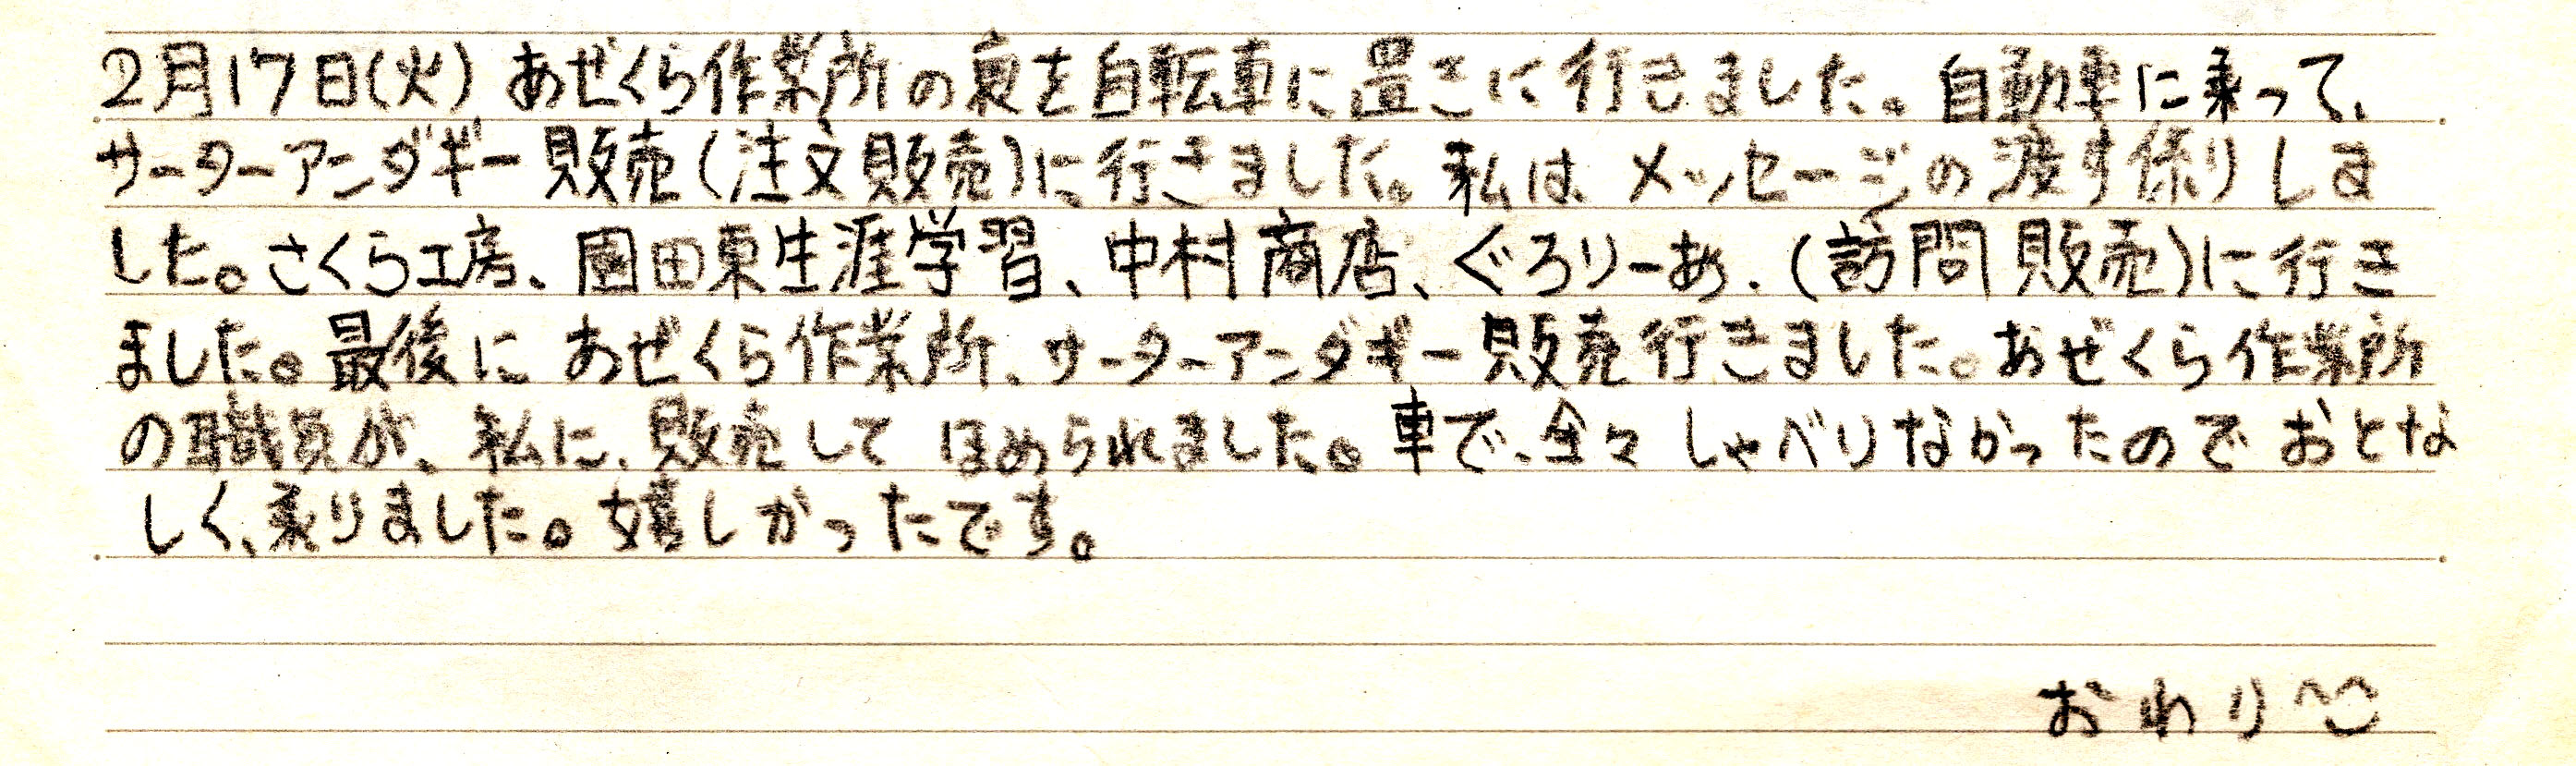 2月17日(火) あぜくら作業所の裏を自転車に置きに行きました。自動車に乗って、
サーターアンダギー販売(注文販売)に行きました。私は、メッセージの渡す係りしま
した。さくら工房、園田東生涯学習、中村商店、ぐろりーあ.(訪問販売)に行き
ました。最後に あぜくら作業所、サーターアンダギー販売行きました。あぜくら作業所
の職員が、私に、販売して ほめられました。車で、全々 しゃべりなかったので おとな
しく、乗りました。嬉しかったです。
おわり